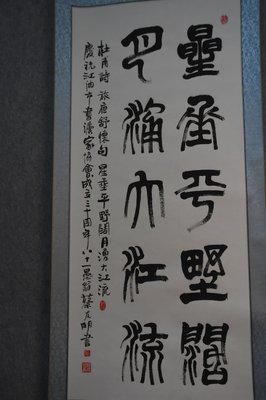 星垂平野闊
月涌大江流
杜甫詩旅夜舒懷句星垂平野闊月湧大江流
慶祝江油市書法家協會成立三十周年八十一叟蔡友明書